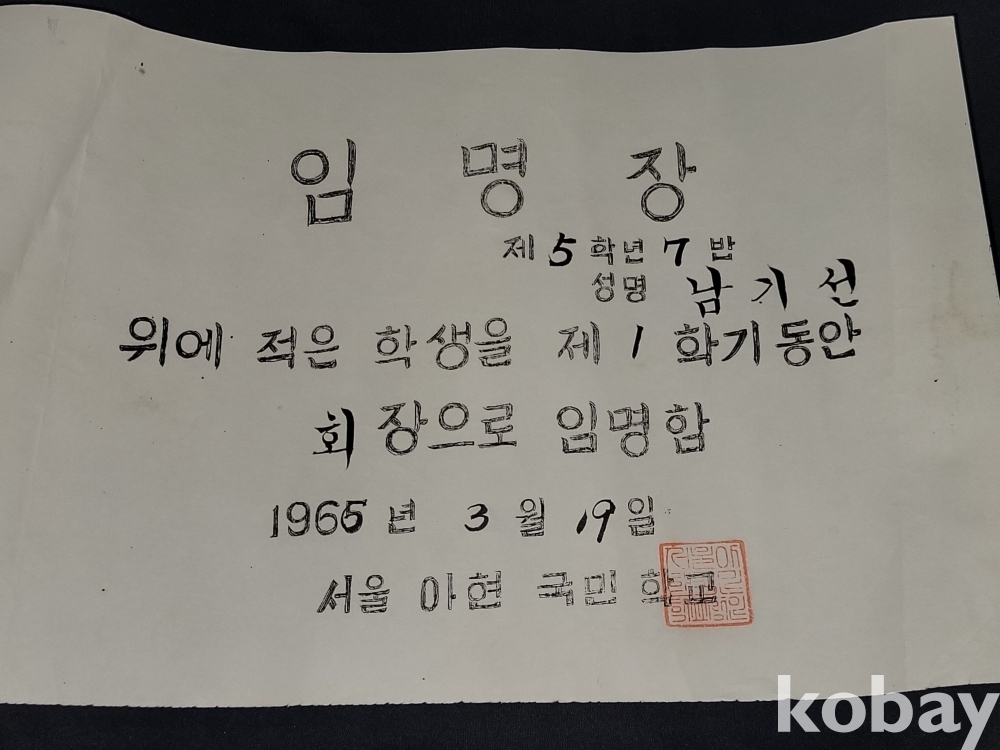 임명장
제 5 학년 7 반
성명 남기선
위에 적은 학생을 제 1 학기동안
회장으로 임명함
1965 년 3 월 19 일
서울 아현 국민 학교
kobay